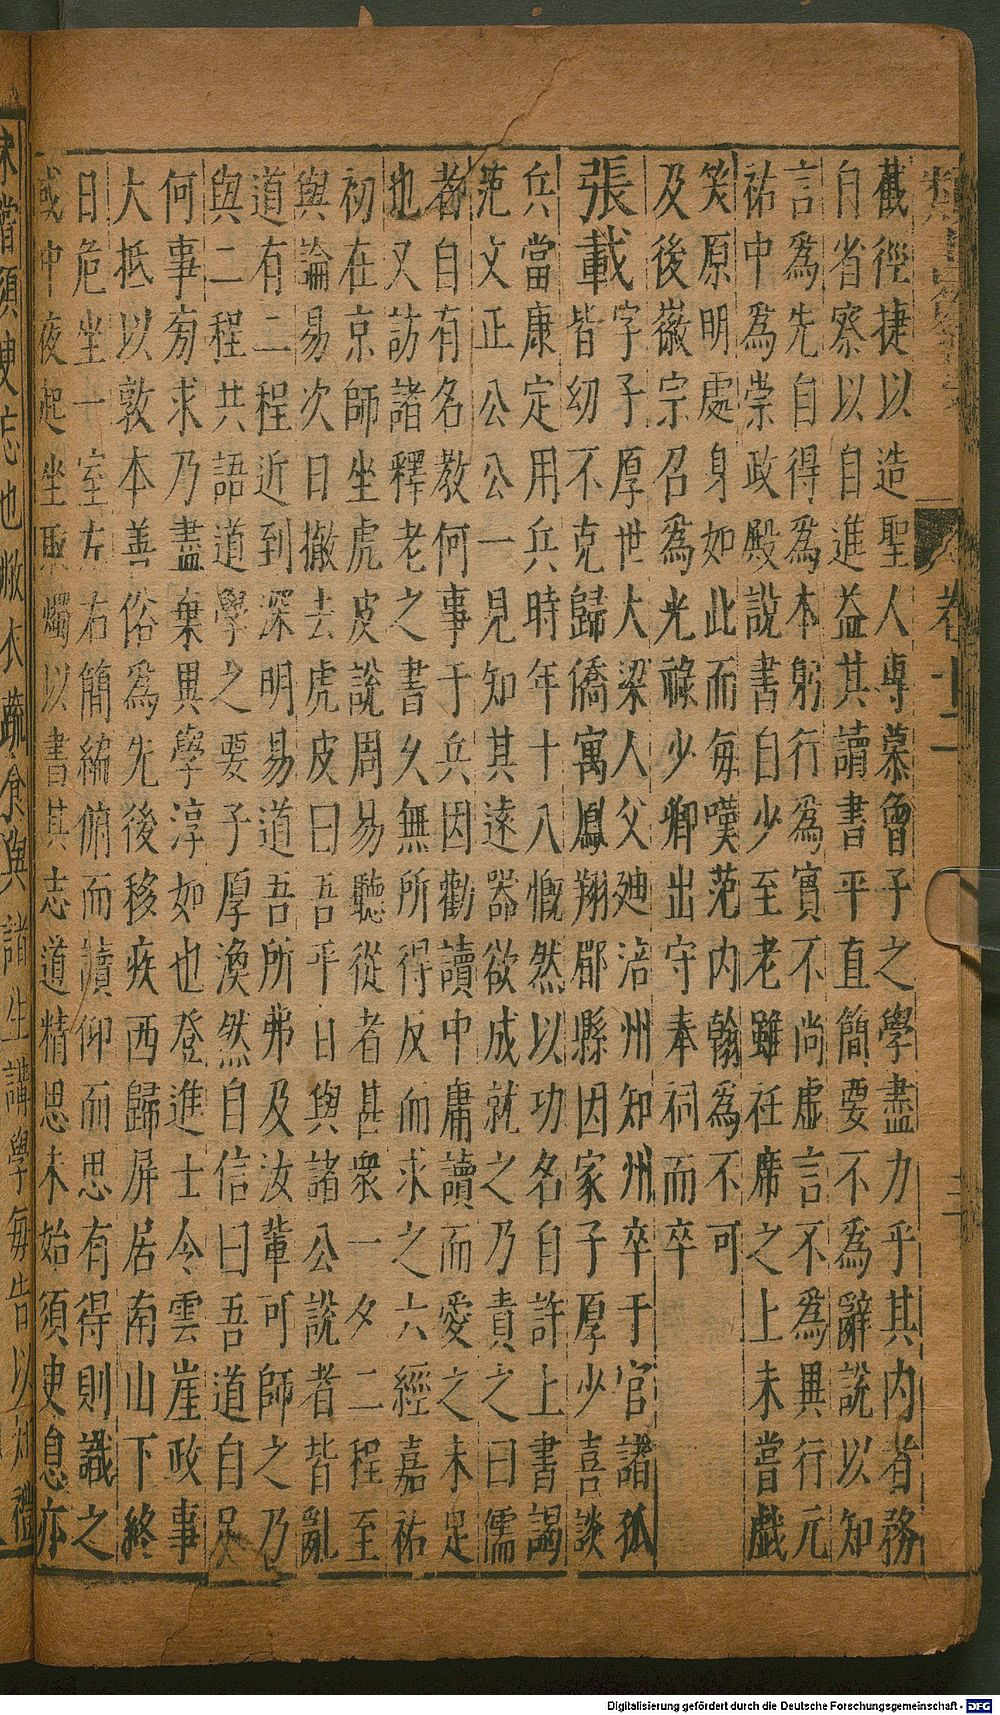 卷十二
三
截徑捷以造聖人專慕曾子之學盡力乎其內省務
自省察以自進益其讀書平直簡要不為辭說以知
言為先自得為本躬行為實不尚虛言不為異行元
祐中為崇政殿說書自少至老雖衽席之上未嘗戲
笑原明處身如此而每嘆范內翰為不可
及後徽宗召為光祿少卿出守奉祠而卒
張載字子厚世大梁人父廸涪州知州卒于官諸狐
皆幼不克歸僑寓鳳翔郿縣因家子厚少喜談
兵當康定用兵時年十八慨然以功名自許上書謁
范文正公公一見知其遠器欲成就之乃責之曰儒
者自有名教何事于兵因勸讀中庸讀而愛之未足
也又訪諸釋老之書久無所得反而求之六經嘉祐
初在京師坐虎皮說周易聽從者甚衆一夕二程至
與論易次日撤去虎皮曰吾平日與諸公說者皆亂
道有二程近到深明易道吾所弗及汝輩可師之乃
與二程共語道學之要子厚渙然自信曰吾道自足
何事旁求乃盡棄異學淳如也登進士令雲崖政事
大抵以敦本善俗為先後移疾西歸屏居南山下終
日危坐一室左右簡編俯而讀仰而思有得則識之
或中夜起坐取燭以書其志道精思未始須臾息亦
未嘗須臾忘也敝衣蔬食與諸生講學每告以知禮
Digitalisierung gefördert durch die Deutsche Forschungsgemeinschaft - DFG